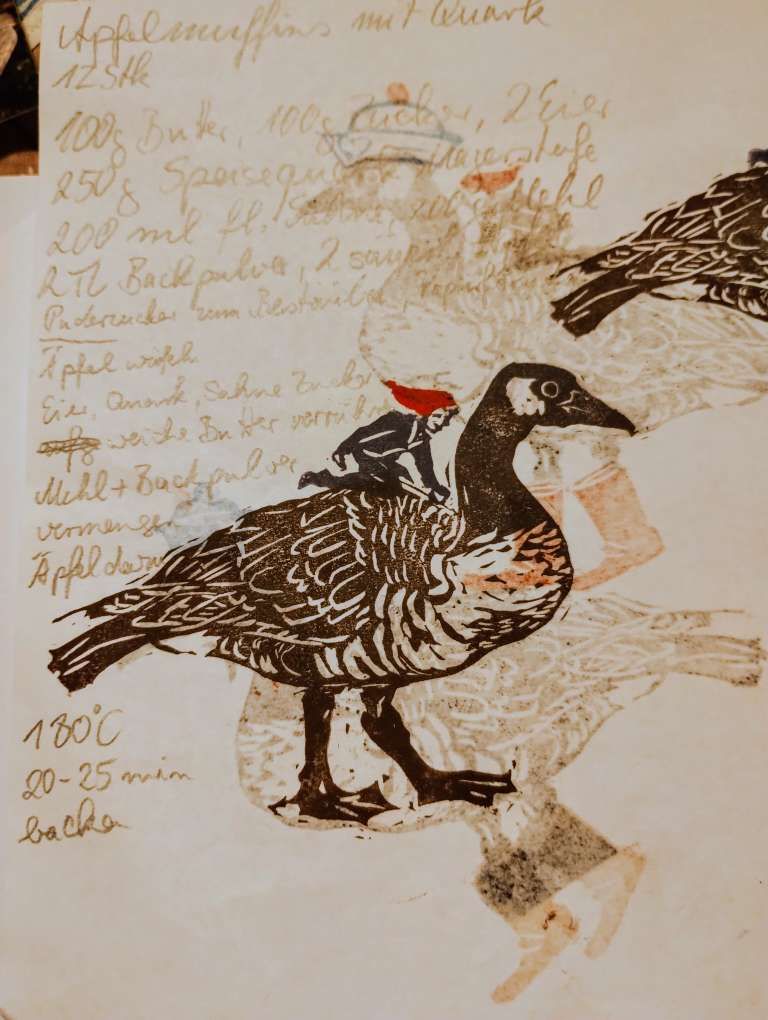 Apfelmuffins mit Quark
12 Stk
100g Butter, 100g Zucker, 2 Eier
250g Speisequark
200 ml fl. Sahne, Mehl
2 TL Backpulver, 2
Puderzucker zum Bestäuben,
Äpfel
Eier, Quark, Sahne Zucker
weiche Butter verrühr
Mehl + Backpulver
vermengen
Äpfel
180°C
20-25 min
backen